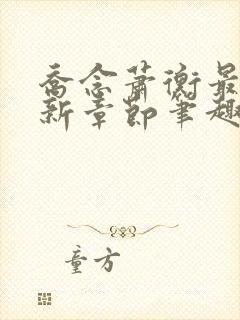 乔念萧衡最
新章节笔趣
童方